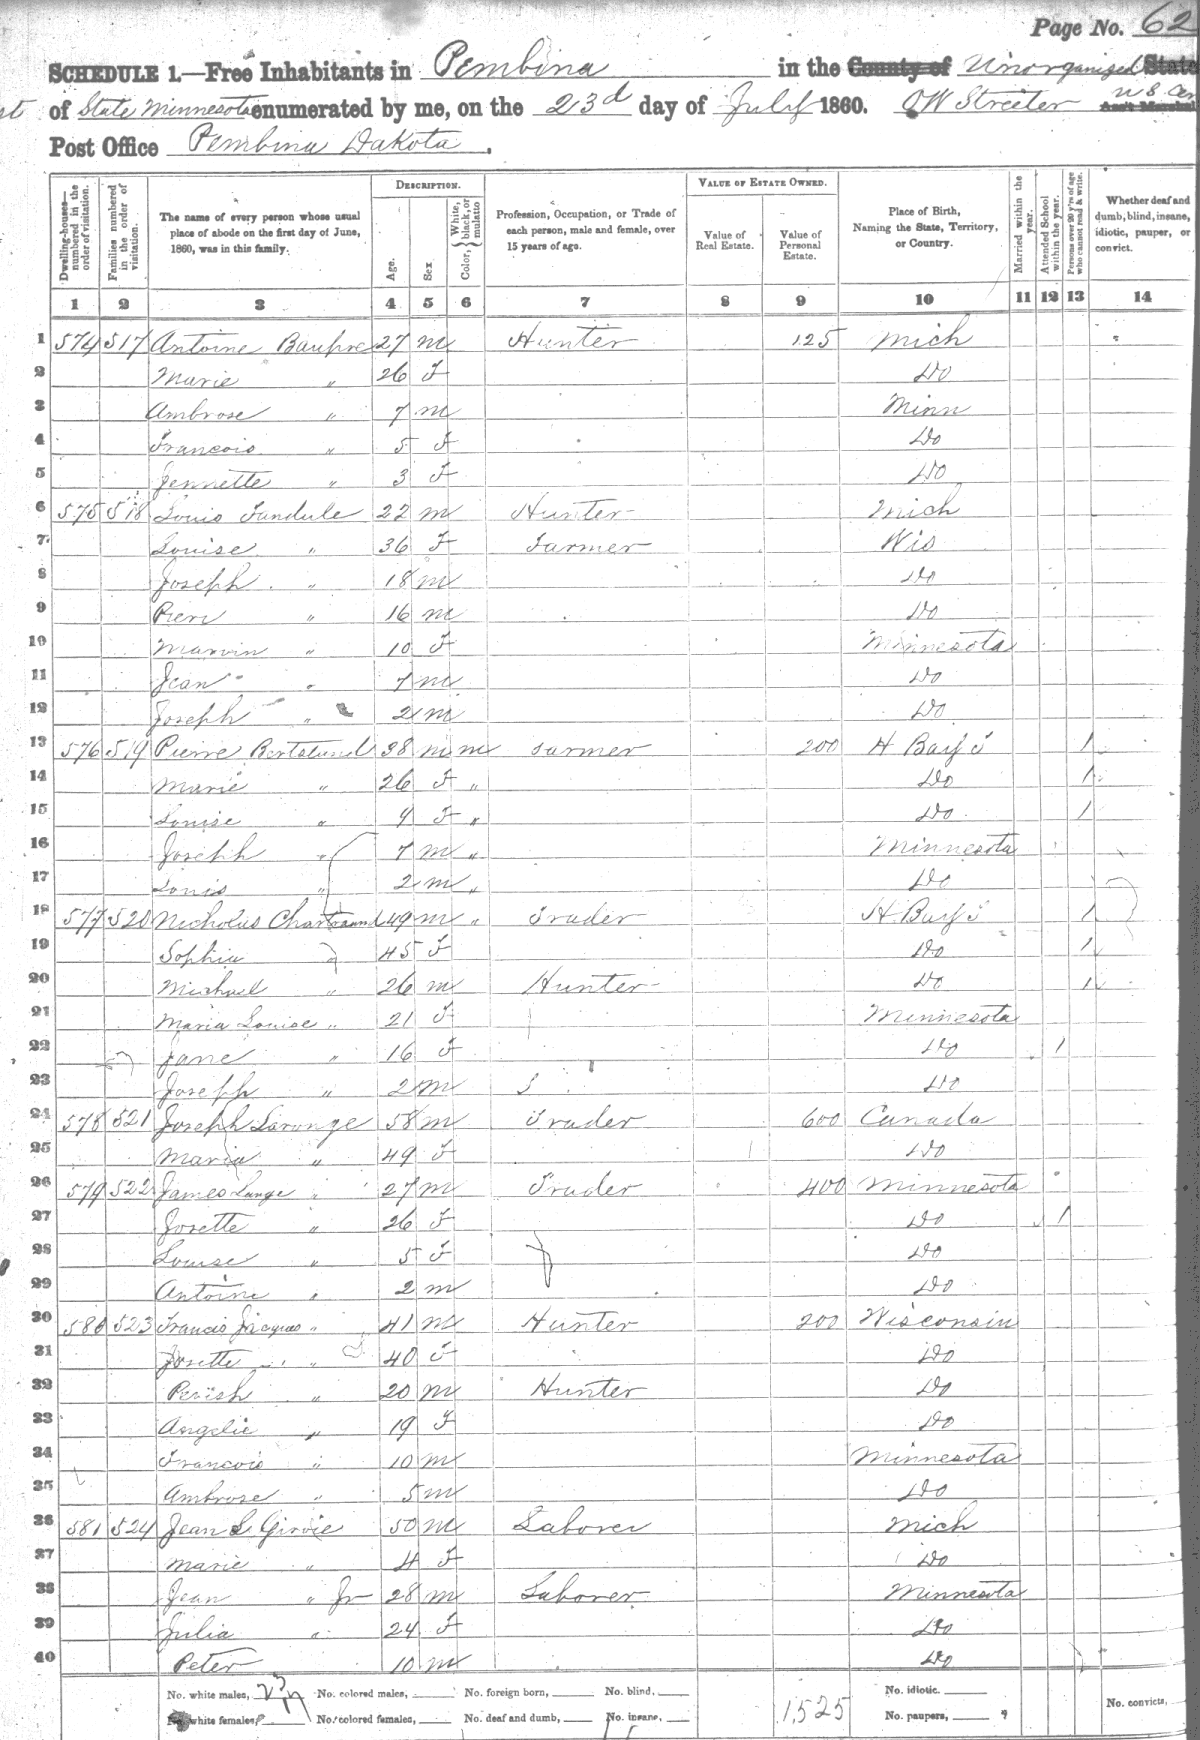 Page No. 62
SCHEDULE 1.—Free Inhabitants in Pembina in the County of Unorganized State
of State Minnesota enumerated by me, on the 23d day of July 1860. O W Streeter U S Cen Ass't Marshal
Post Office Pembina Dakota.
Dwelling-houses—numbered in the order of visitation. Families numbered in the order of visitation. The name of every person whose usual place of abode on the first day of June, 1860, was in this family. DESCRIPTION. Age. Sex Color, White, black, or mulatto Profession, Occupation, or Trade of each person, male and female, over 15 years of age. VALUE OF ESTATE OWNED. Value of Real Estate. Value of Personal Estate. Place of Birth, Naming the State, Territory, or Country. Married within the year. Attended School within the year. Persons over 20 y'rs of age who cannot read & write. Whether deaf and dumb, blind, insane, idiotic, pauper, or convict.
1 2 3 4 5 6 7 8 9 10 11 12 13 14
1 574 517 Antoine Baupre 27 m Hunter 125 Mich
2 Marie " 26 F Do
3 Ambrose " 7 m Minn
4 Francois " 5 F Do
5 Jennette " 3 F Do
6 575 518 Louis Fandule 22 m Hunter Mich
7 Louise " 36 F Farmer Wis
8 Joseph " 18 m Do
9 Piere " 16 m Do
10 Marvin " 10 F Minnesota
11 Jean " 7 m Do
12 Joseph " 2 m Do
13 576 519 Pierre 38 m m Farmer 200 H Bay T 1
14 Marie " 26 F " Do 1
15 Louise " 9 F " Do 1
16 Joseph " 7 m " Minnesota
17 Louis " 2 m " Do
18 577 520 Nicholas Chartraund 49 m " Trader H Bay T 1
19 Sophia " 45 F Do 1
20 Michael " 26 m Hunter Do 1
21 Maria Louise " 21 F Minnesota
22 Jane " 16 F Do 1
23 Joseph " 2 m Do
24 578 521 Joseph Laronge 58 m Trader 600 Canada
25 Maria " 49 F Do
26 579 522 James Lange " 27 m Trader 400 Minnesota
27 Josette " 26 F Do 1
28 Louise " 5 F Do
29 Antoine " 2 m Do
30 580 523 Francis Jacques " 41 m Hunter 200 Wisconsin
31 Josette " 40 F Do
32 Perish " 20 m Hunter Do
33 Angelie " 19 F Do
34 Francois " 10 m Minnesota
35 Ambrose " 5 m Do
36 581 524 Jean L Girvie 50 m Laborer Mich
37 Marie " 4 F Do
38 Jean " Jr 28 m Laborer Minnesota
39 Julia " 24 F Do
40 Peter 10 m Do
No. white males, No. colored males, No. foreign born, No. blind, 1,525 No. idiotic.
No. white females, No. colored females, No. deaf and dumb, No. insane, No. paupers, No. convicts,